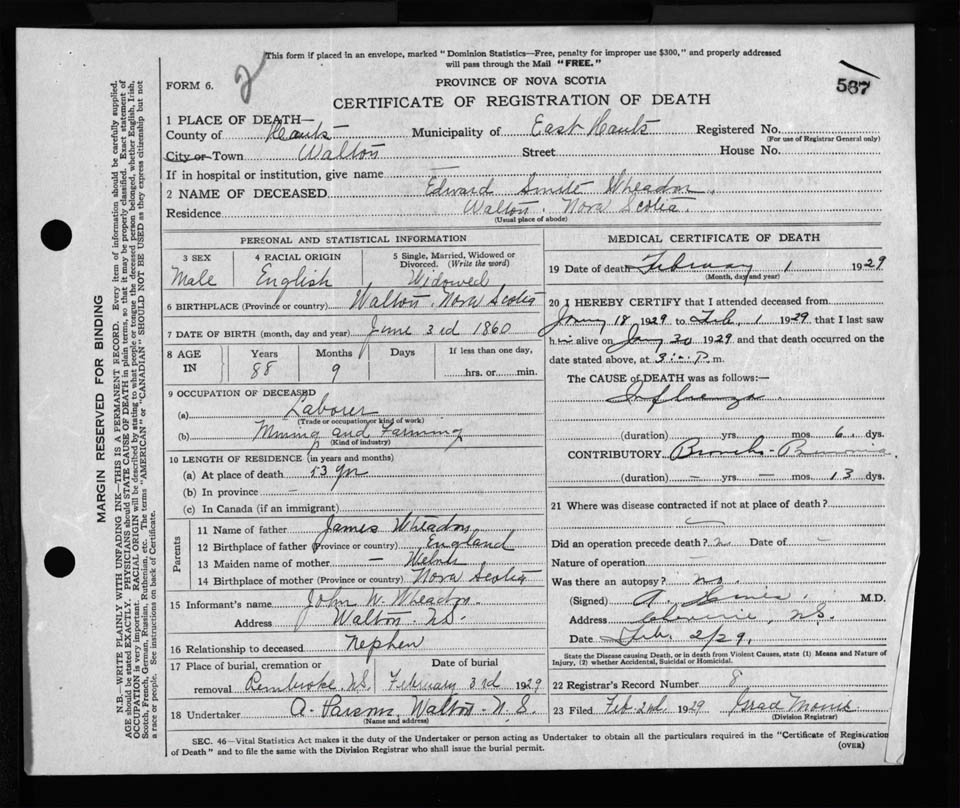 This form if placed in an envelope, marked "Dominion Statistics—Free, penalty for improper use $300," and properly addressed
will pass through the Mail "FREE."
FORM 6.
2
PROVINCE OF NOVA SCOTIA
567
CERTIFICATE OF REGISTRATION OF DEATH
1 PLACE OF DEATH—
County of Hants Municipality of East Hants Registered No.
(For use of Registrar General only)
City or Town Walton Street House No.
If in hospital or institution, give name —
2 NAME OF DECEASED Edward Smith Wheadon
Residence Walton. Nova Scotia.
(Usual place of abode)
PERSONAL AND STATISTICAL INFORMATION
3 SEX
Male
4 RACIAL ORIGIN
English
5 Single, Married, Widowed or
Divorced. (Write the word)
Widowed
6 BIRTHPLACE (Province or country) Walton, Nova Scotia
7 DATE OF BIRTH (month, day and year) June 3rd 1860
8 AGE
IN
Years
88
Months
9
Days
If less than one day,
hrs. or min.
9 OCCUPATION OF DECEASED
(a) Laborer
(Trade or occupation or kind of work)
(b) Mining and Farming
(Kind of industry)
10 LENGTH OF RESIDENCE (in years and months)
(a) At place of death 53 yr
(b) In province —
(c) In Canada (if an immigrant)
Parents
11 Name of father James Wheadon
12 Birthplace of father (Province or country) England
13 Maiden name of mother —
14 Birthplace of mother (Province or country) Nova Scotia
15 Informant's name John W. Wheadon
Address Walton. N.S.
16 Relationship to deceased Nephew
17 Place of burial, cremation or Date of burial
removal Pembroke N.S. February 3rd 1929
18 Undertaker A. Parsons, Walton N.S.
(Name and address)
MEDICAL CERTIFICATE OF DEATH
19 Date of death February 1 1929
(Month, day and year)
20 I HEREBY CERTIFY that I attended deceased from
Jany 18 1929 to Feb. 1 1929 that I last saw
him alive on Jany 30 1929 and that death occurred on the
date stated above, at 3 P.m.
The CAUSE of DEATH was as follows:—
Influenza
(duration) yrs. mos. 6 dys.
CONTRIBUTORY Broncho-Pneumonia
(duration) — yrs. — mos. 13 dys.
21 Where was disease contracted if not at place of death?
—
Did an operation precede death? n Date of —
Nature of operation —
Was there an autopsy? no.
(Signed) A. M.D.
Address N.S.
Date Feb. 2/29.
State the Disease causing Death, or in death from Violent Causes, state (1) Means and Nature of
Injury, (2) whether Accidental, Suicidal or Homicidal.
22 Registrar's Record Number 8
23 Filed Feb 2nd 1929
(Division Registrar)
SEC. 46—Vital Statistics Act makes it the duty of the Undertaker or person acting as Undertaker to obtain all the particulars required in the "Certificate of Registration
of Death" and to file the same with the Division Registrar who shall issue the burial permit. (OVER)
MARGIN RESERVED FOR BINDING
N.B.—WRITE PLAINLY WITH UNFADING INK—THIS IS A PERMANENT RECORD. Every item of information should be carefully supplied.
AGE should be stated EXACTLY. PHYSICIANS should STATE CAUSE OF DEATH in plain terms, so that it may be properly classified. Exact statement of
OCCUPATION is very important. RACIAL ORIGIN will be described by stating to what people or tongue the deceased person belonged, whether English, Irish,
Scotch, French, German, Russian, Ruthenian, etc. The terms "AMERICAN" or "CANADIAN" SHOULD NOT BE USED as they express citizenship but not
a race or people. See instructions on back of Certificate.